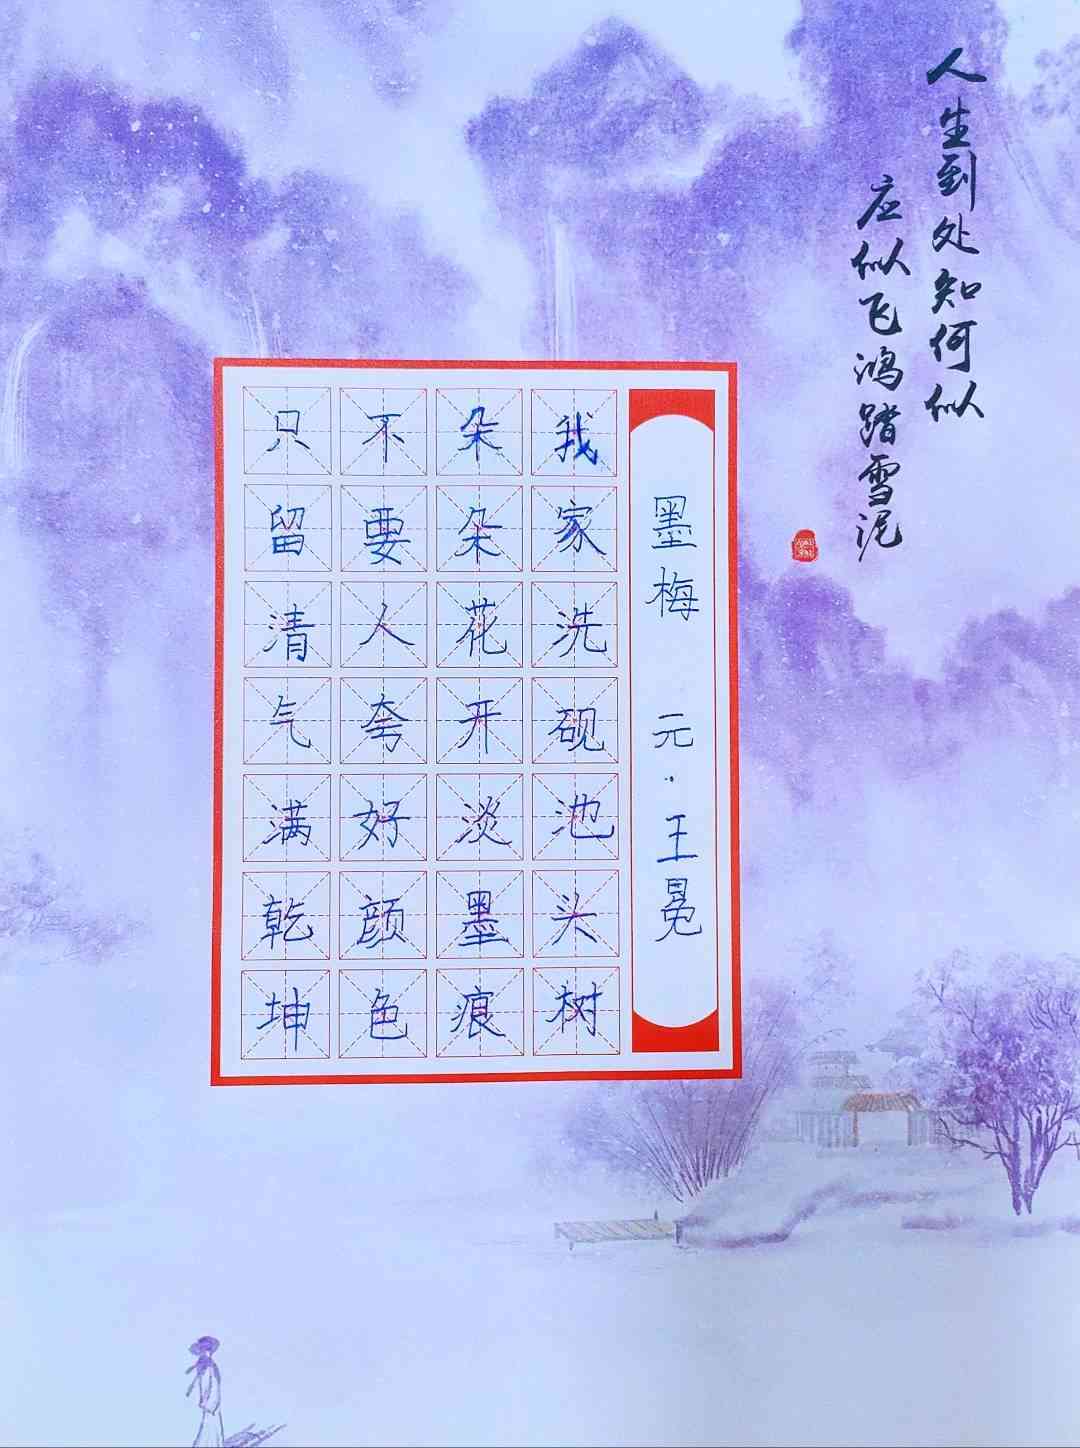 人生到处知何似
应似飞鸿踏雪泥
墨梅 元·王冕
我家洗砚池头树
朵朵花开淡墨痕
不要人夸好颜色
只留清气满乾坤